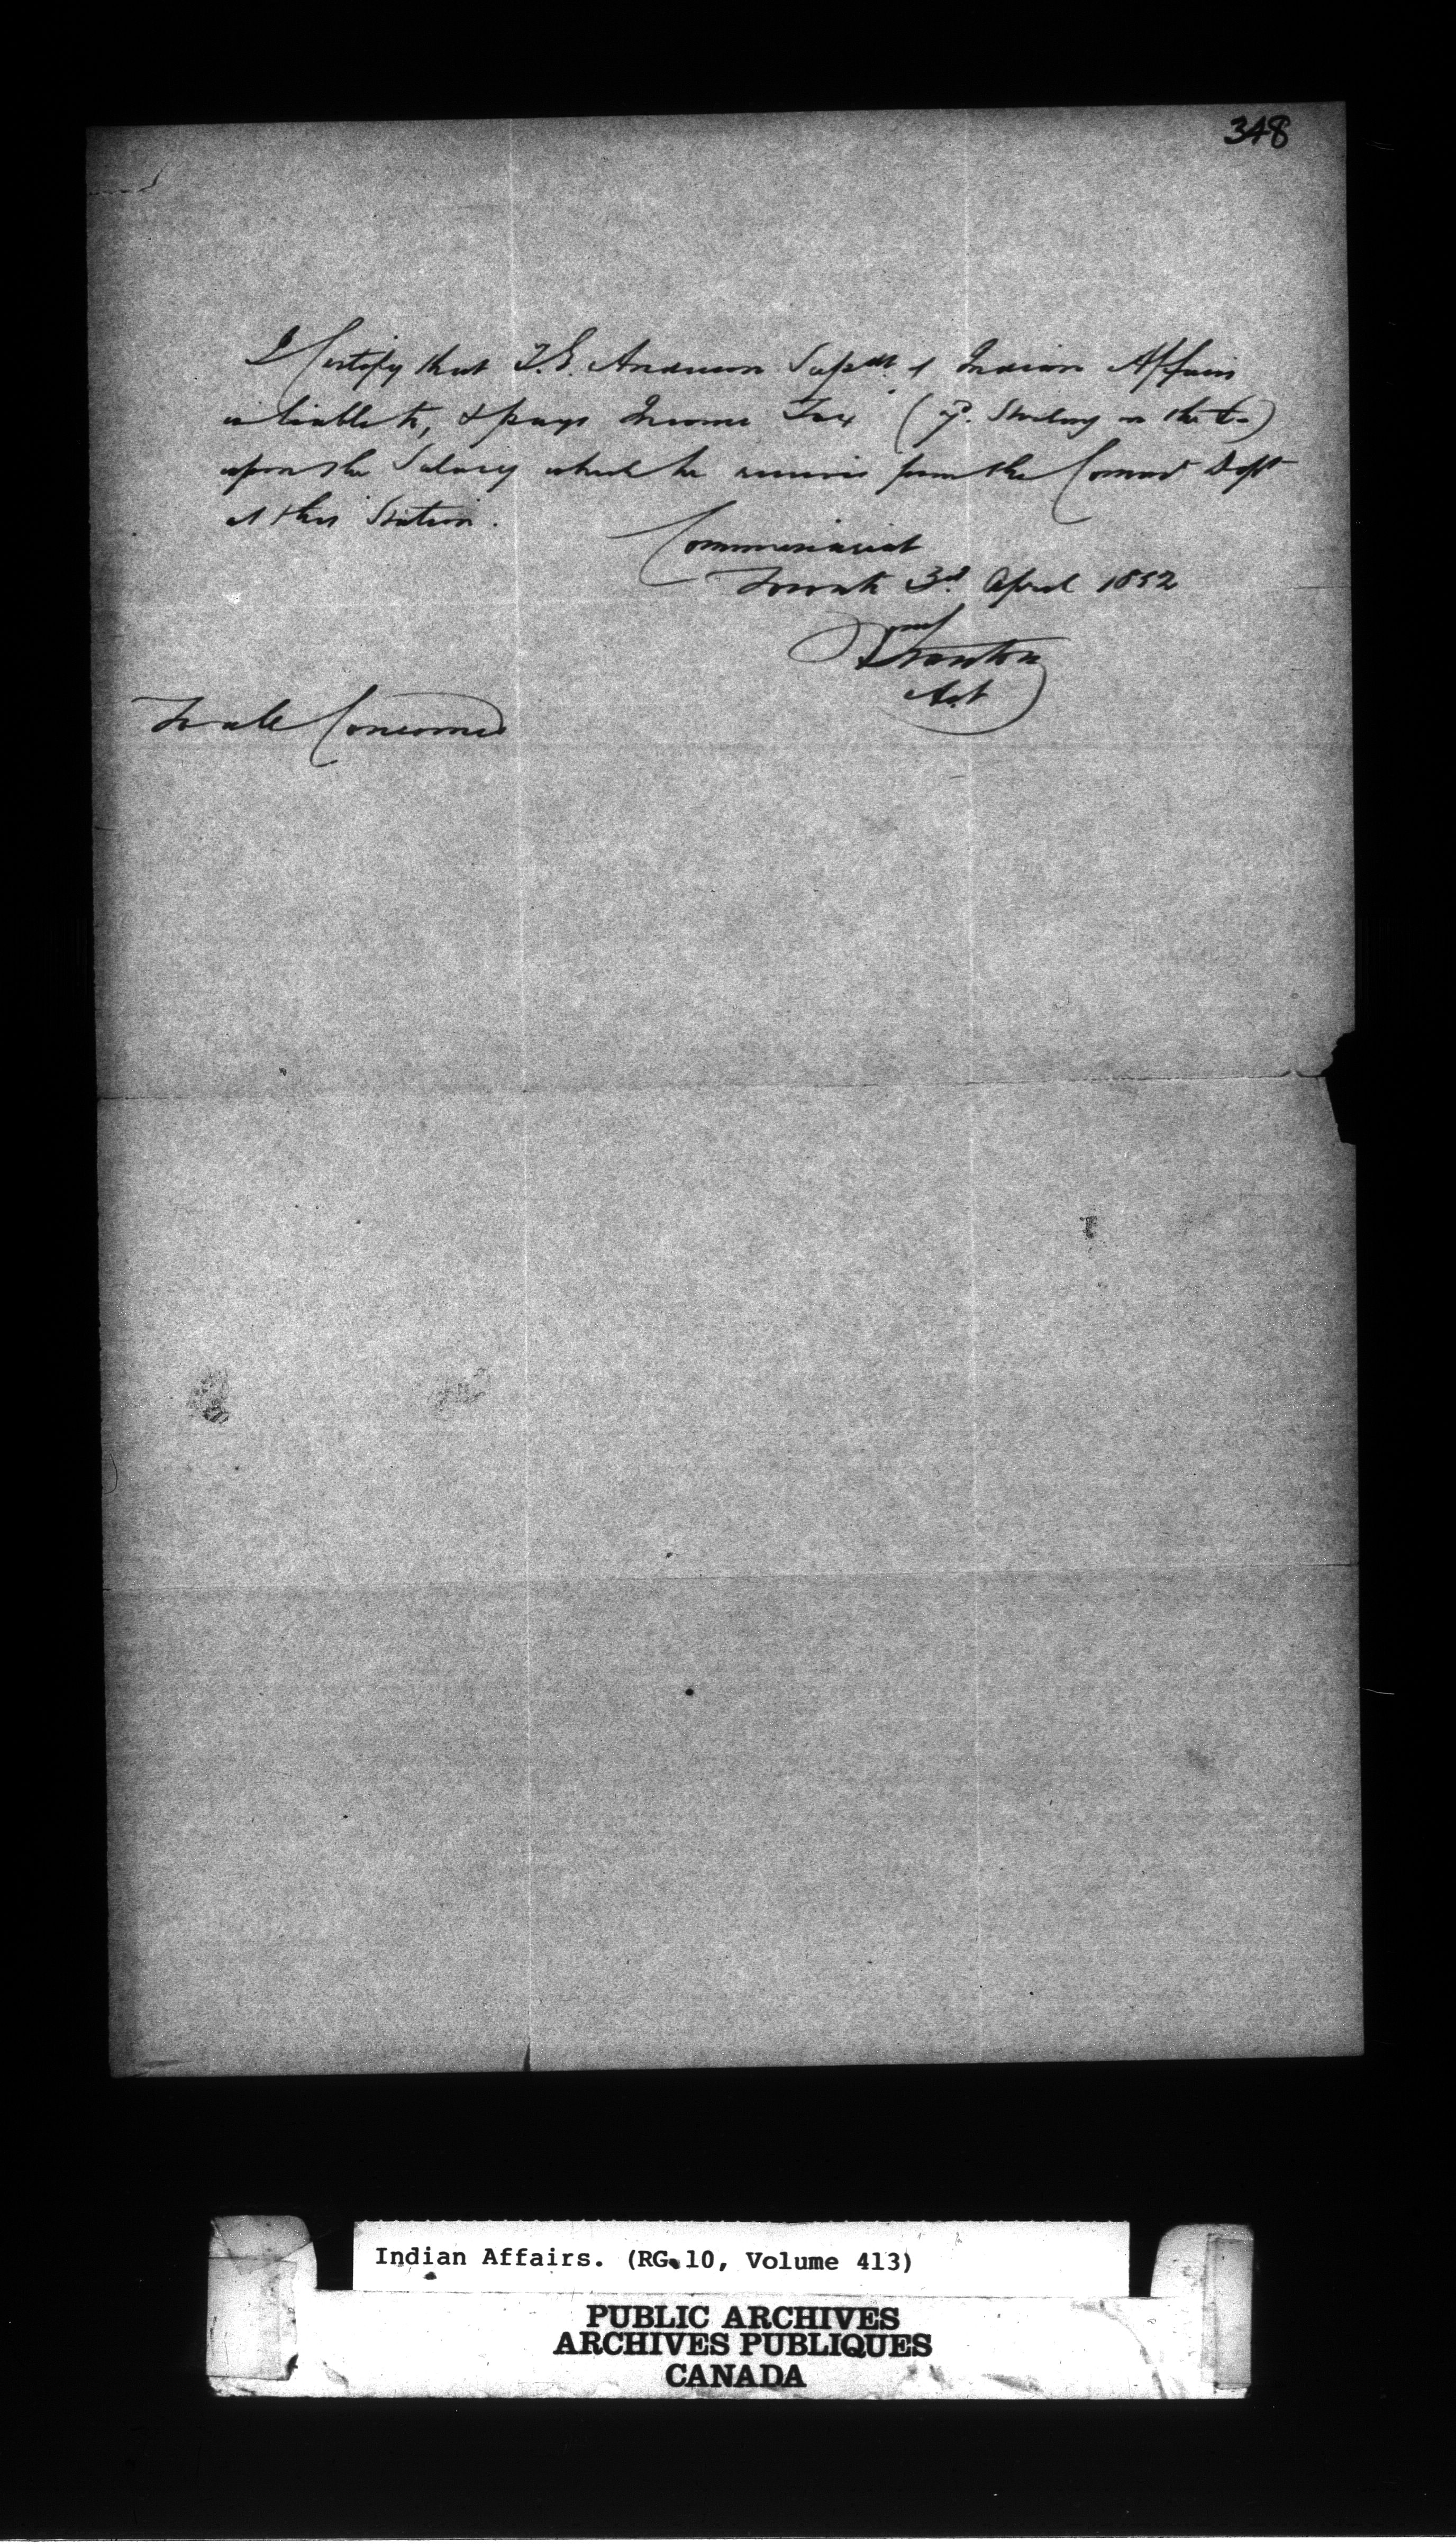 348
I Certify that T.G. Anderson Supdt. of Indian Affairs
is liable to, & pays Income Tax (7d. Sterling in the £)
upon the Salary which he receives from the Commt Dept
at this Station.
Commissariat
Toronto 3d. April 1852
Stanton
To all Concerned
Indian Affairs. (RG 10, Volume 413)
PUBLIC ARCHIVES
ARCHIVES PUBLIQUES
CANADA